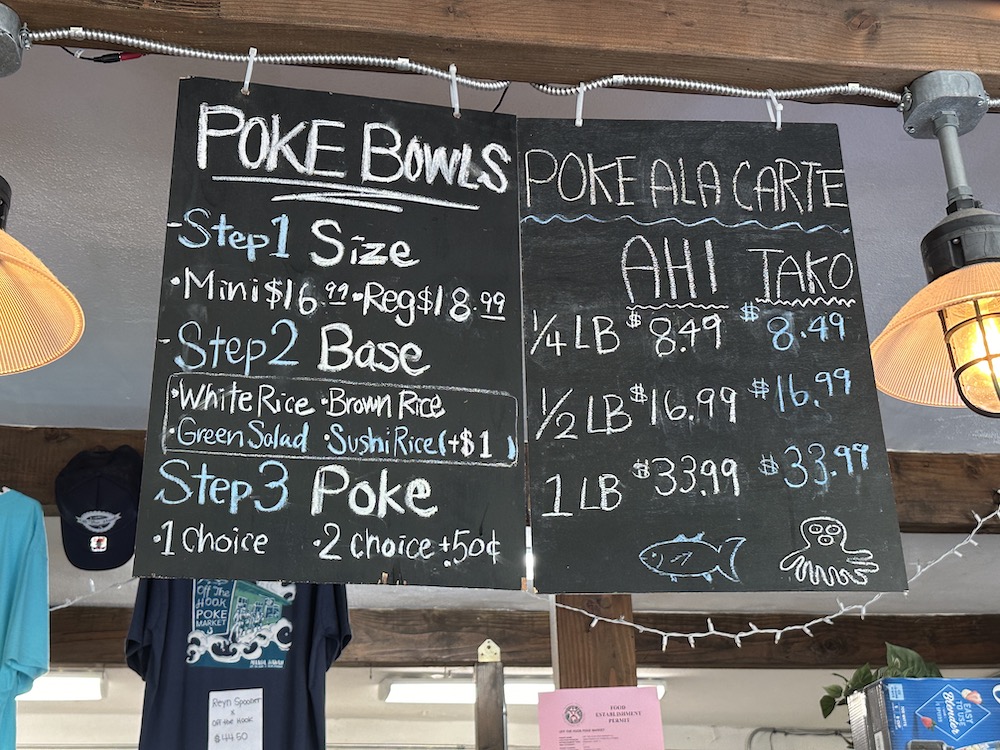 POKE BOWLS
-Step1 Size
•Mini $16.99 •Reg $18.99
-Step2 Base
•White Rice •Brown Rice
•Green Salad •Sushi Rice (+$1)
Step3 Poke
•1 choice •2 choice +.50¢
POKE ALA CARTE
AHI TAKO
1/4 LB $8.49 $8.49
1/2 LB $16.99 $16.99
1 LB $33.99 $33.99
Off The
HOOK
POKE
MARKET
MANOA, HAWAII
Reyn Spooner
x
Off the Hook
$44.50
FOOD
ESTABLISHMENT
PERMIT
OFF THE HOOK POKE MARKET
EASY
TO USE
Blender